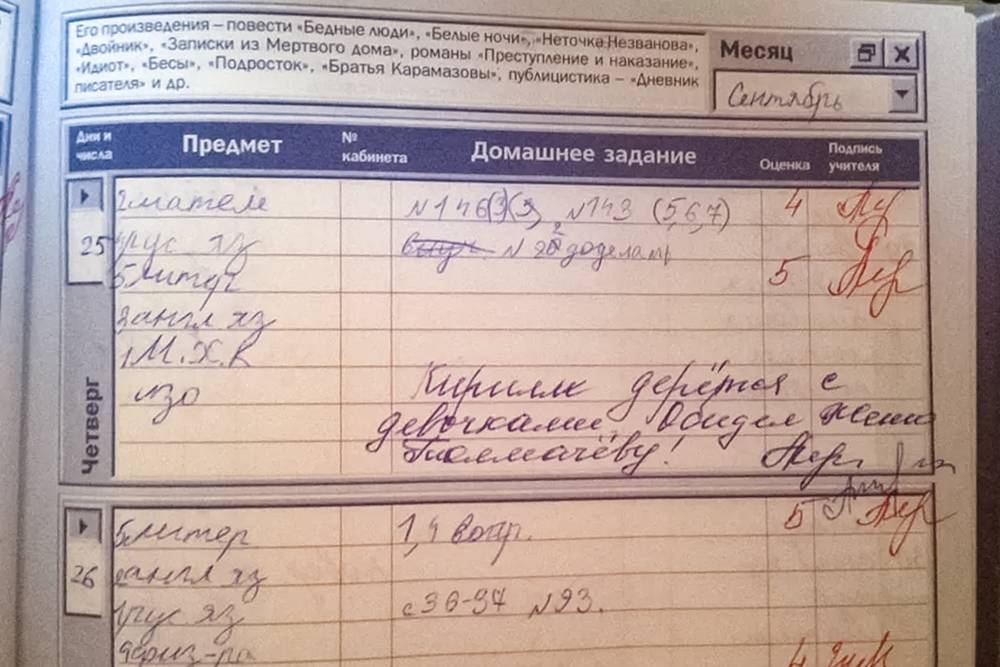 Его произведения – повести «Бедные люди», «Белые ночи», «Неточка Незванова»,
«Двойник», «Записки из Мертвого дома», романы «Преступление и наказание»,
«Идиот», «Бесы», «Подросток», «Братья Карамазовы», публицистика – «Дневник
писателя» и др.
Месяц
Сентябрь
Дни и числа Предмет № кабинета Домашнее задание Оценка Подпись учителя
25
Четверг
2 матем №143 (5,6,7) 4
рус яз доделать
5 литер 5
англ яз
1 М.Х.К
изо
Кирилл дерётся с
девочками. Обидел Ксению
Толмачёву!
26
5 литер 1,4 вопр. 5
англ яз
рус яз с36-37 №93.
физ-ра 4